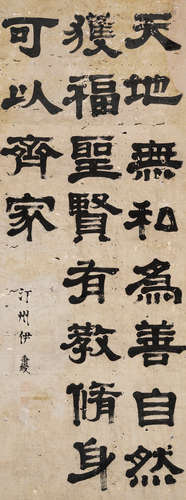 天地無私為善自然
獲福聖賢有教脩身
可以齊家
汀州伊秉綬